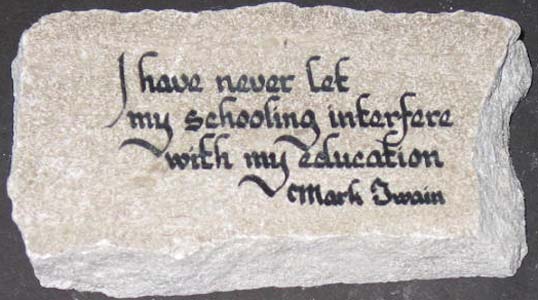 I have never let
my schooling interfere
with my education
Mark Twain